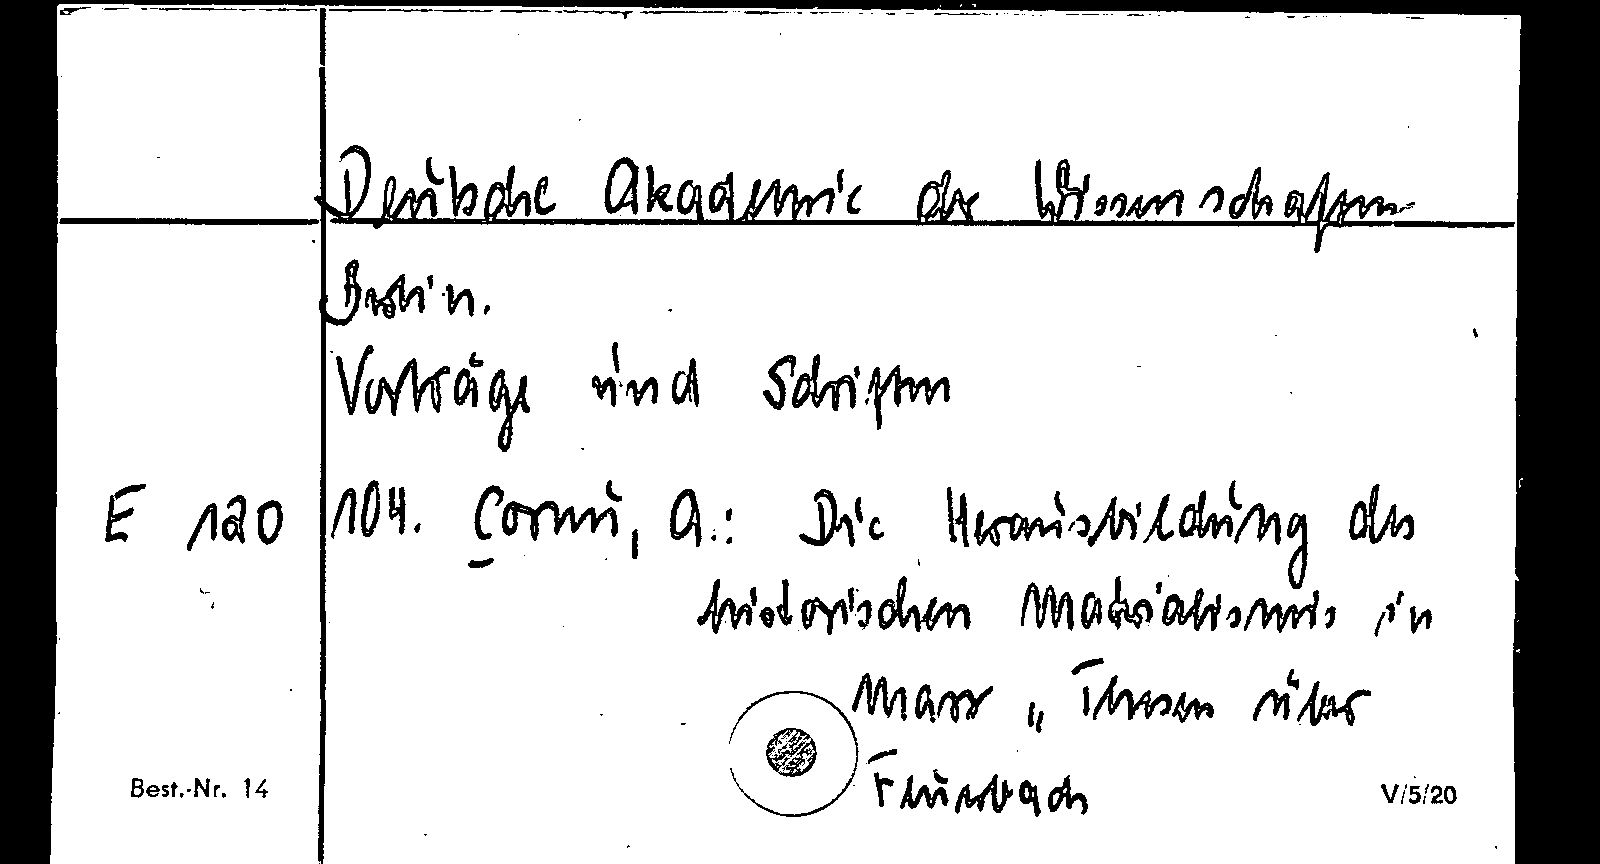 Deutsche Akademie der Wissenschaften
Berlin.
Vorträge und Schriften
E 120 104. Cornu, A.: Die Herausbildung des
historischen Materialismus in
Marx „Thesen über
Feuerbach
Best.-Nr. 14 V/5/20